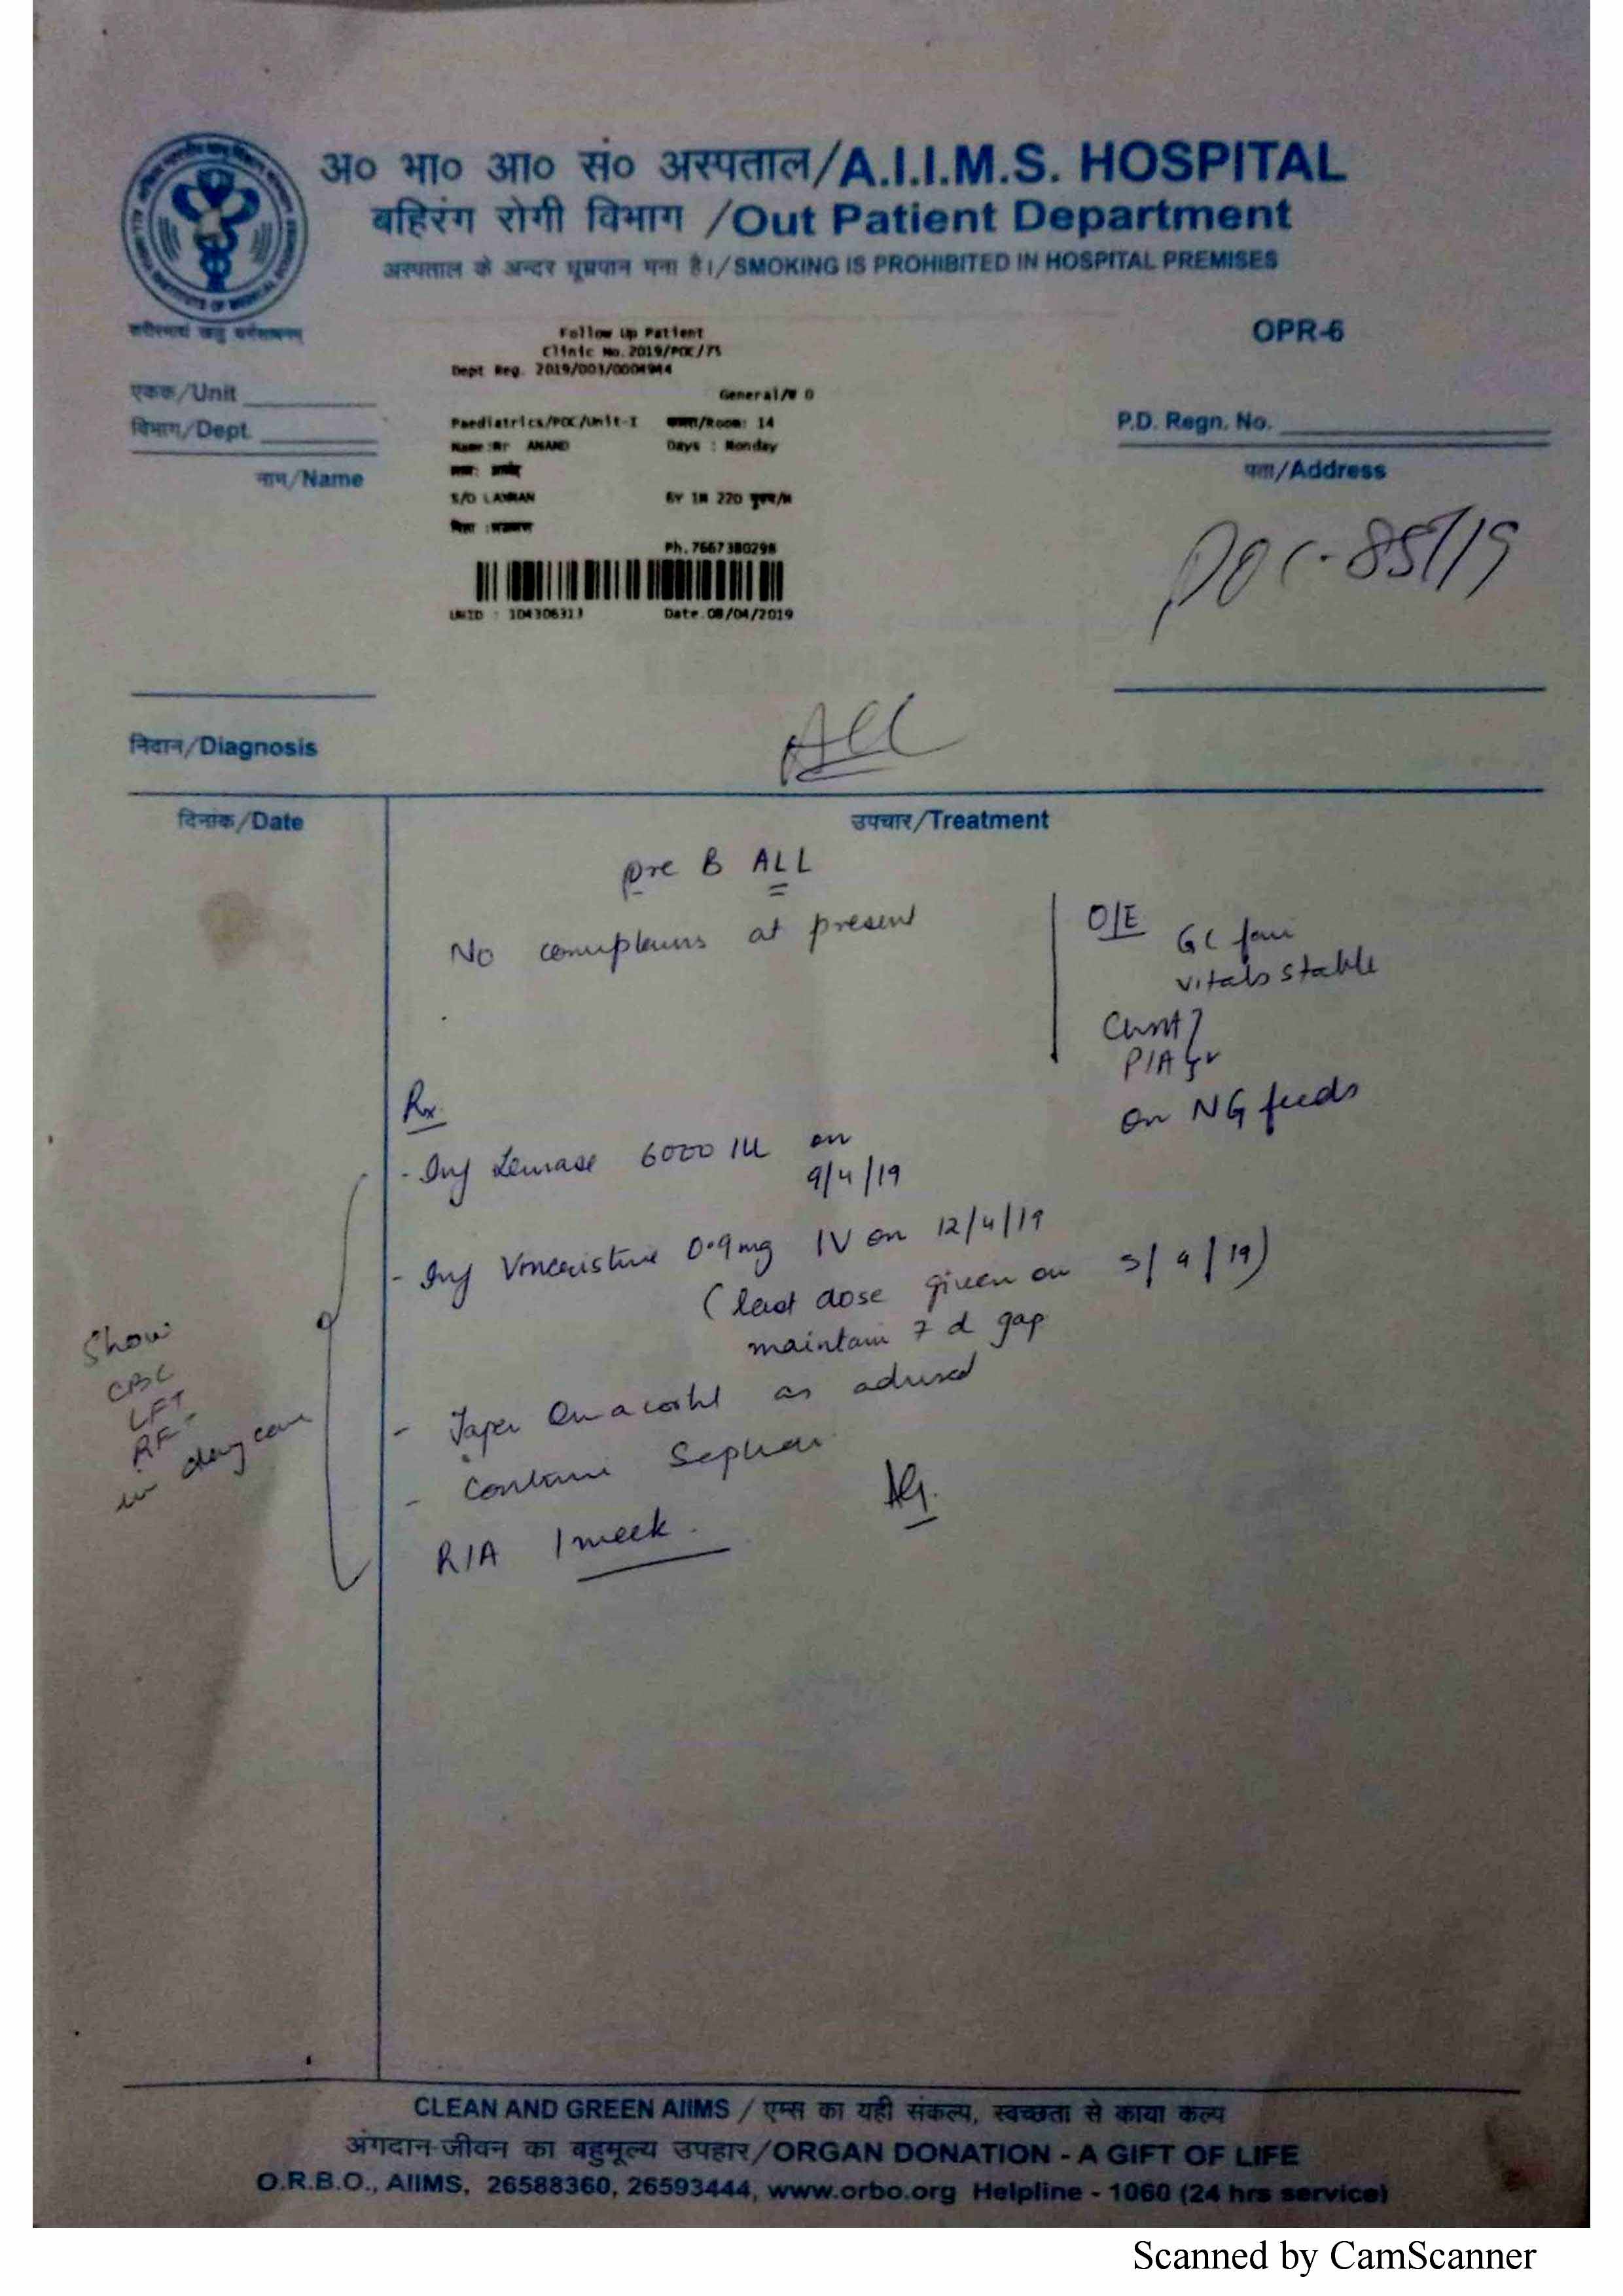 अ० भा० आ० सं० अस्पताल/A.I.I.M.S. HOSPITAL
बहिरंग रोगी विभाग /Out Patient Department
अस्पताल के अन्दर धूम्रपान मना है।/SMOKING IS PROHIBITED IN HOSPITAL PREMISES
OPR-6
Follow Up Patient
Clinic No. 2019/POC/75
Dept Reg. 2019/003/0004944
General/
एकक/Unit
Paediatrics/POC/Unit-I /Room: 14
P.D. Regn. No.
विभाग/Dept.
Name :Mr ANAND Days : Monday
नाम/Name
पता/Address
S/O LAXMAN 6Y 1M 22D
Ph. 7667380298
POC-85/19
UHID : 104306313 Date 08/04/2019
ALL
निदान/Diagnosis
दिनांक/Date
उपचार/Treatment
pre B ALL
No complains at present
O/E GC fair
vitals stable
Chest
P/A
on NG feeds
Rx
- Inj 6000 IU on
9/4/19
- Inj Vincristine 0.9mg IV on 12/4/19
(last dose given on /4/19)
maintain 7 d gap
- Taper as advised
- Continue Septran
R/A 1 week.
Show
CBC
LFT
RFT
in day care
CLEAN AND GREEN AIIMS / एम्स का यही संकल्प, स्वच्छता से काया कल्प
अंगदान-जीवन का बहुमूल्य उपहार/ORGAN DONATION - A GIFT OF LIFE
O.R.B.O., AIIMS, 26588360, 26593444, www.orbo.org Helpline - 1060 (24 hrs service)
Scanned by CamScanner